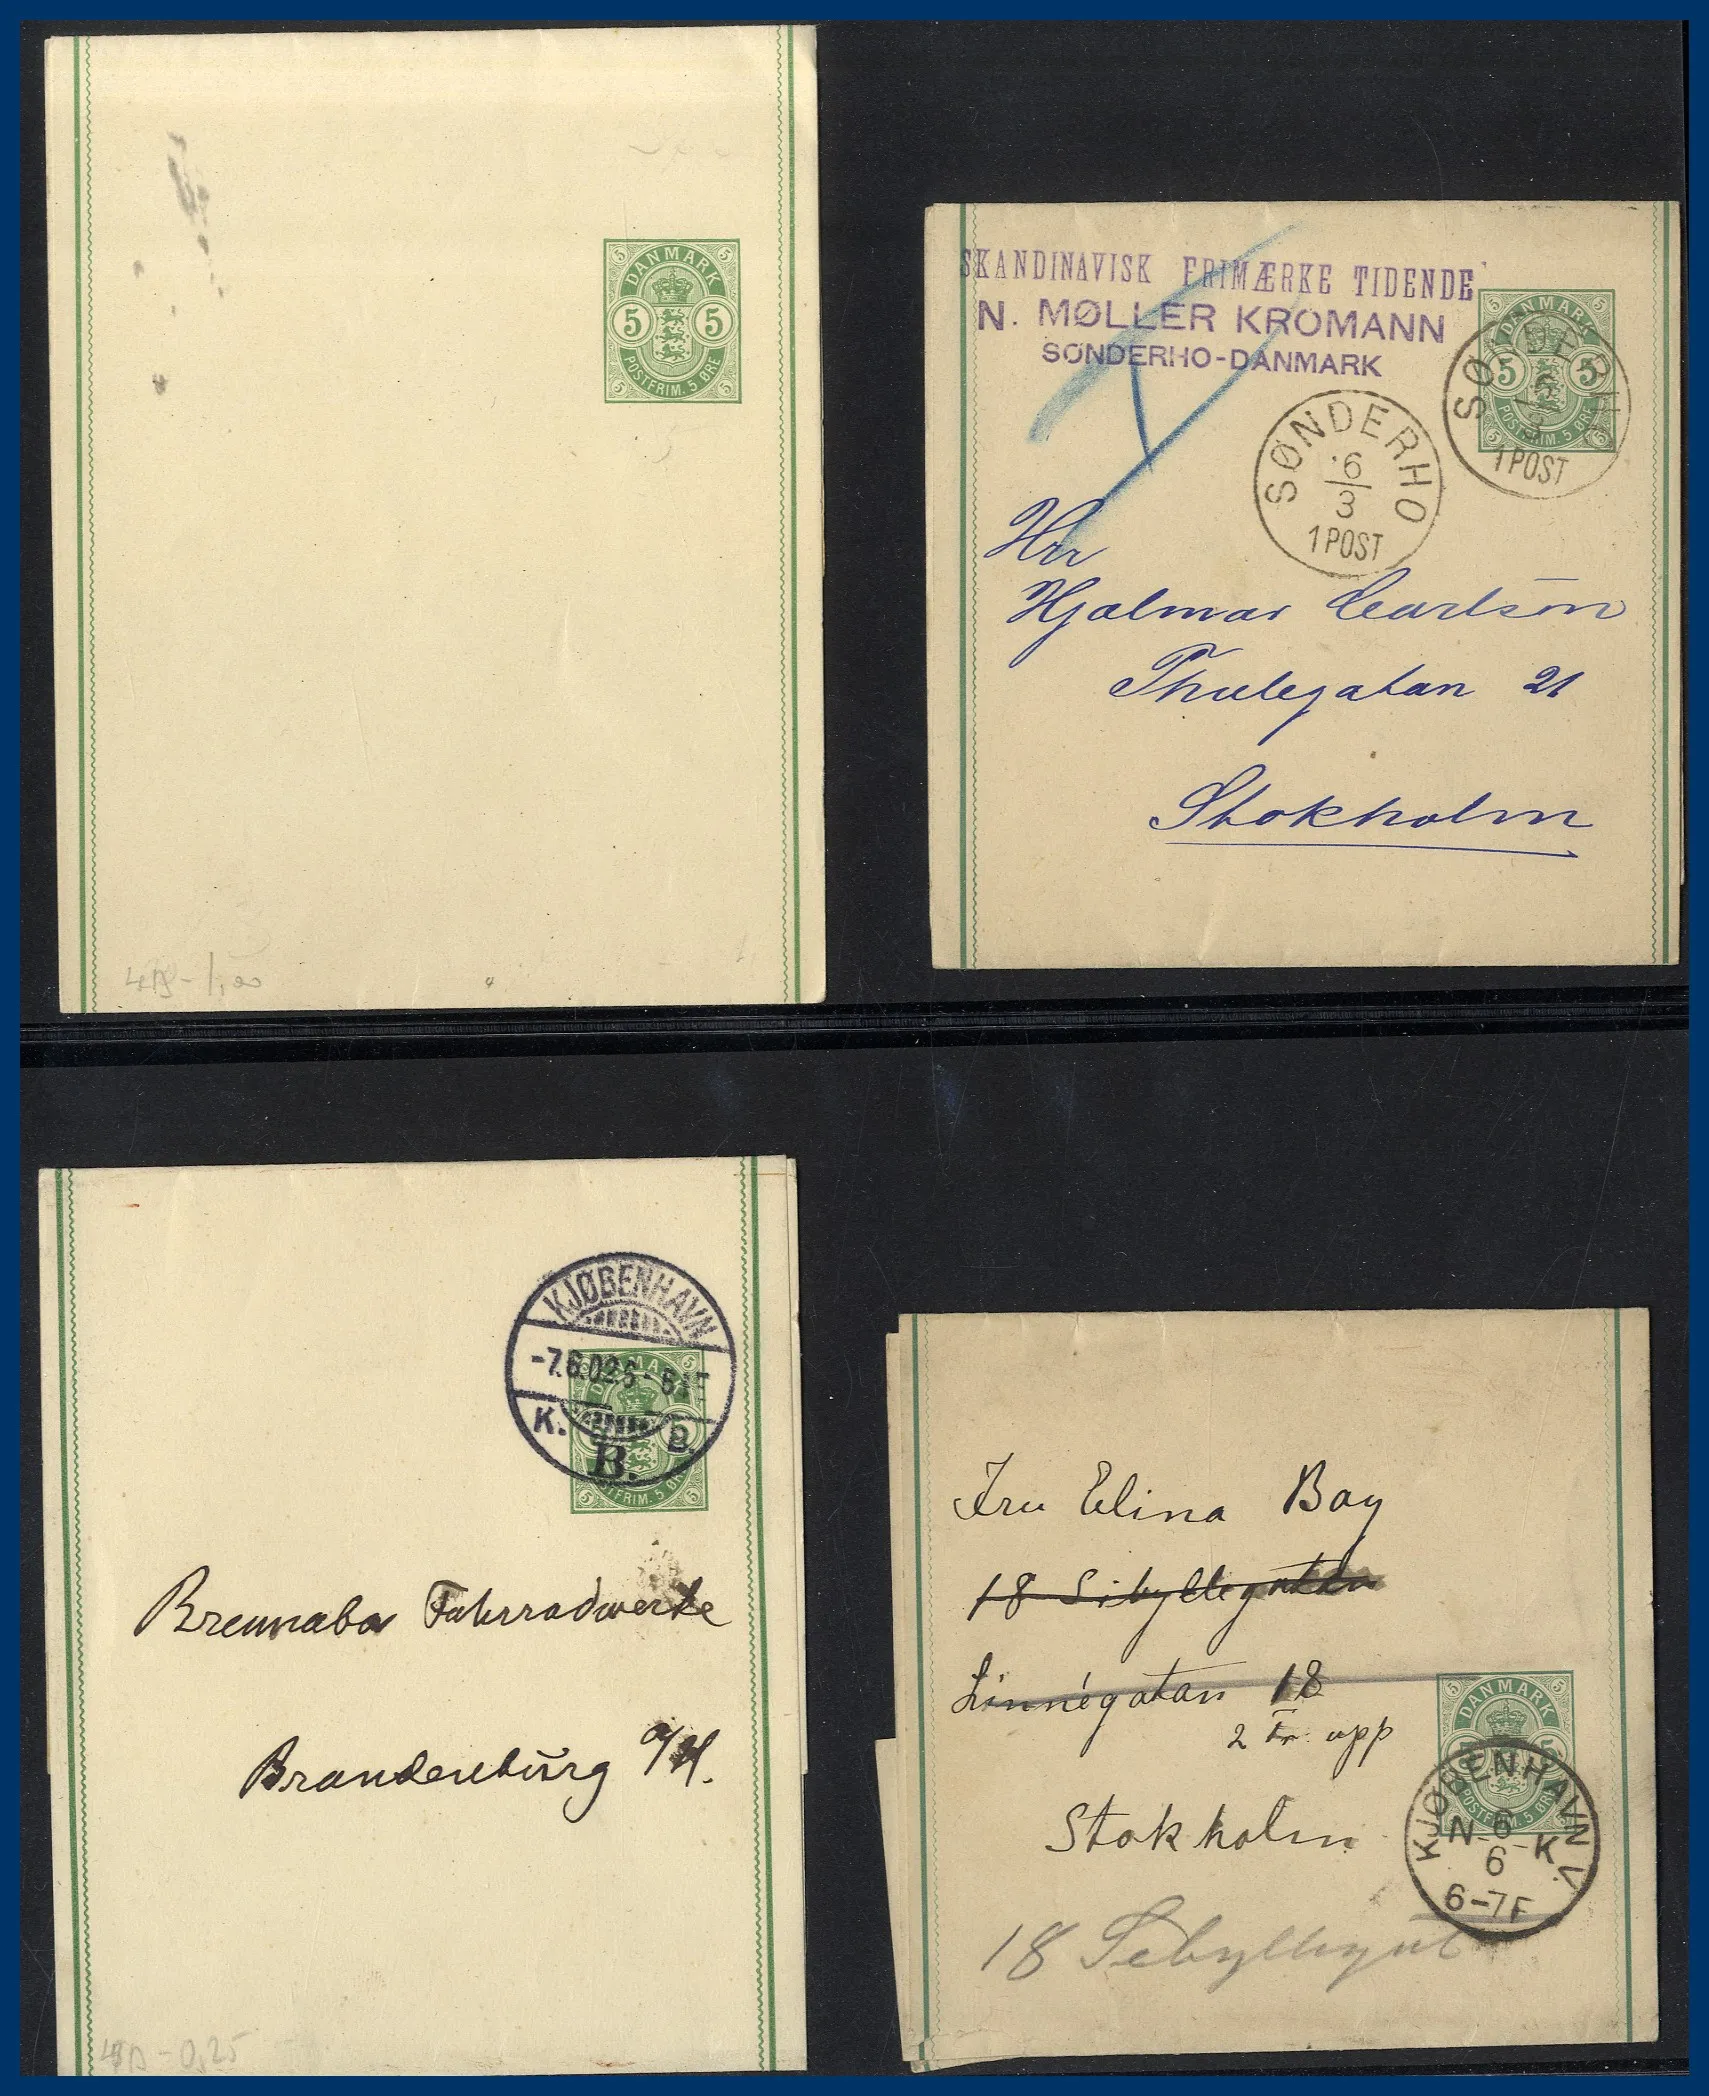 5 5
DANMARK
5 5
POSTFRIM. 5 ØRE
5 5
4B - 1,00
SKANDINAVISK FRIMÆRKE TIDENDE
N. MØLLER KROMANN
SØNDERHO-DANMARK
5 5
DANMARK
5 5
POSTFRIM. 5 ØRE
5
SØNDERHO
6
3
1 POST
SØNDERHO
6
3
1 POST
Hrr
Hjalmar Carlson
Thulegatan 21
Stokholm
KJØBENHAVN
-7.6.02 6-
K. B.
B.
5
5
POSTFRIM. 5 ØRE
5 5
Brennabor Fahrradwerke
Brandenburg a/H.
4A - 0,25
Fru Elina Bay
18 Sibyllegatan
Linnégatan 18
2 tr. upp
Stokholm
5 5
DANMARK
POSTFRIM. 5 ØRE
KJØBENHAVN V.
N 6 K
6
6-7F
18 Sebyllegat